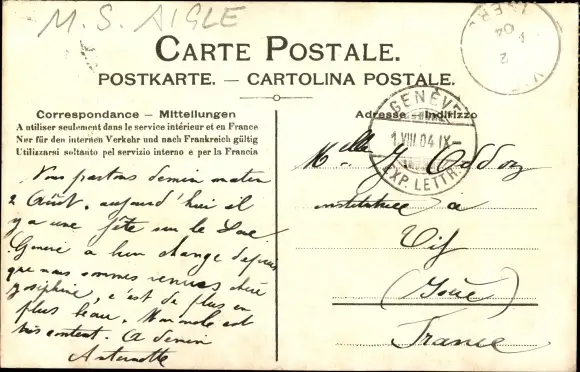 M. S. AIGLE
CARTE POSTALE.
POSTKARTE. — CARTOLINA POSTALE.
Correspondance – Mitteilungen
A utiliser seulement dans le service intérieur et en France
Nur für den internen Verkehr und nach Frankreich gültig
Utilizzarsi soltanto pel servizio interno e per la Francia
Nous partons demain matin
2 Août. aujourd'hui il
y a une fête sur le Lac
Genève a bien changé depuis
que nous sommes venues chère
Joséphine, c'est de plus en
plus beau. est
très content. A demain
Antoinette
Adresse – Indirizzo
GENÈVE
1 VIII 04 IX –
EXP. LETTR.
2
04
Melle J. Oddoz
institutrice à
Vif
(Isère)
France